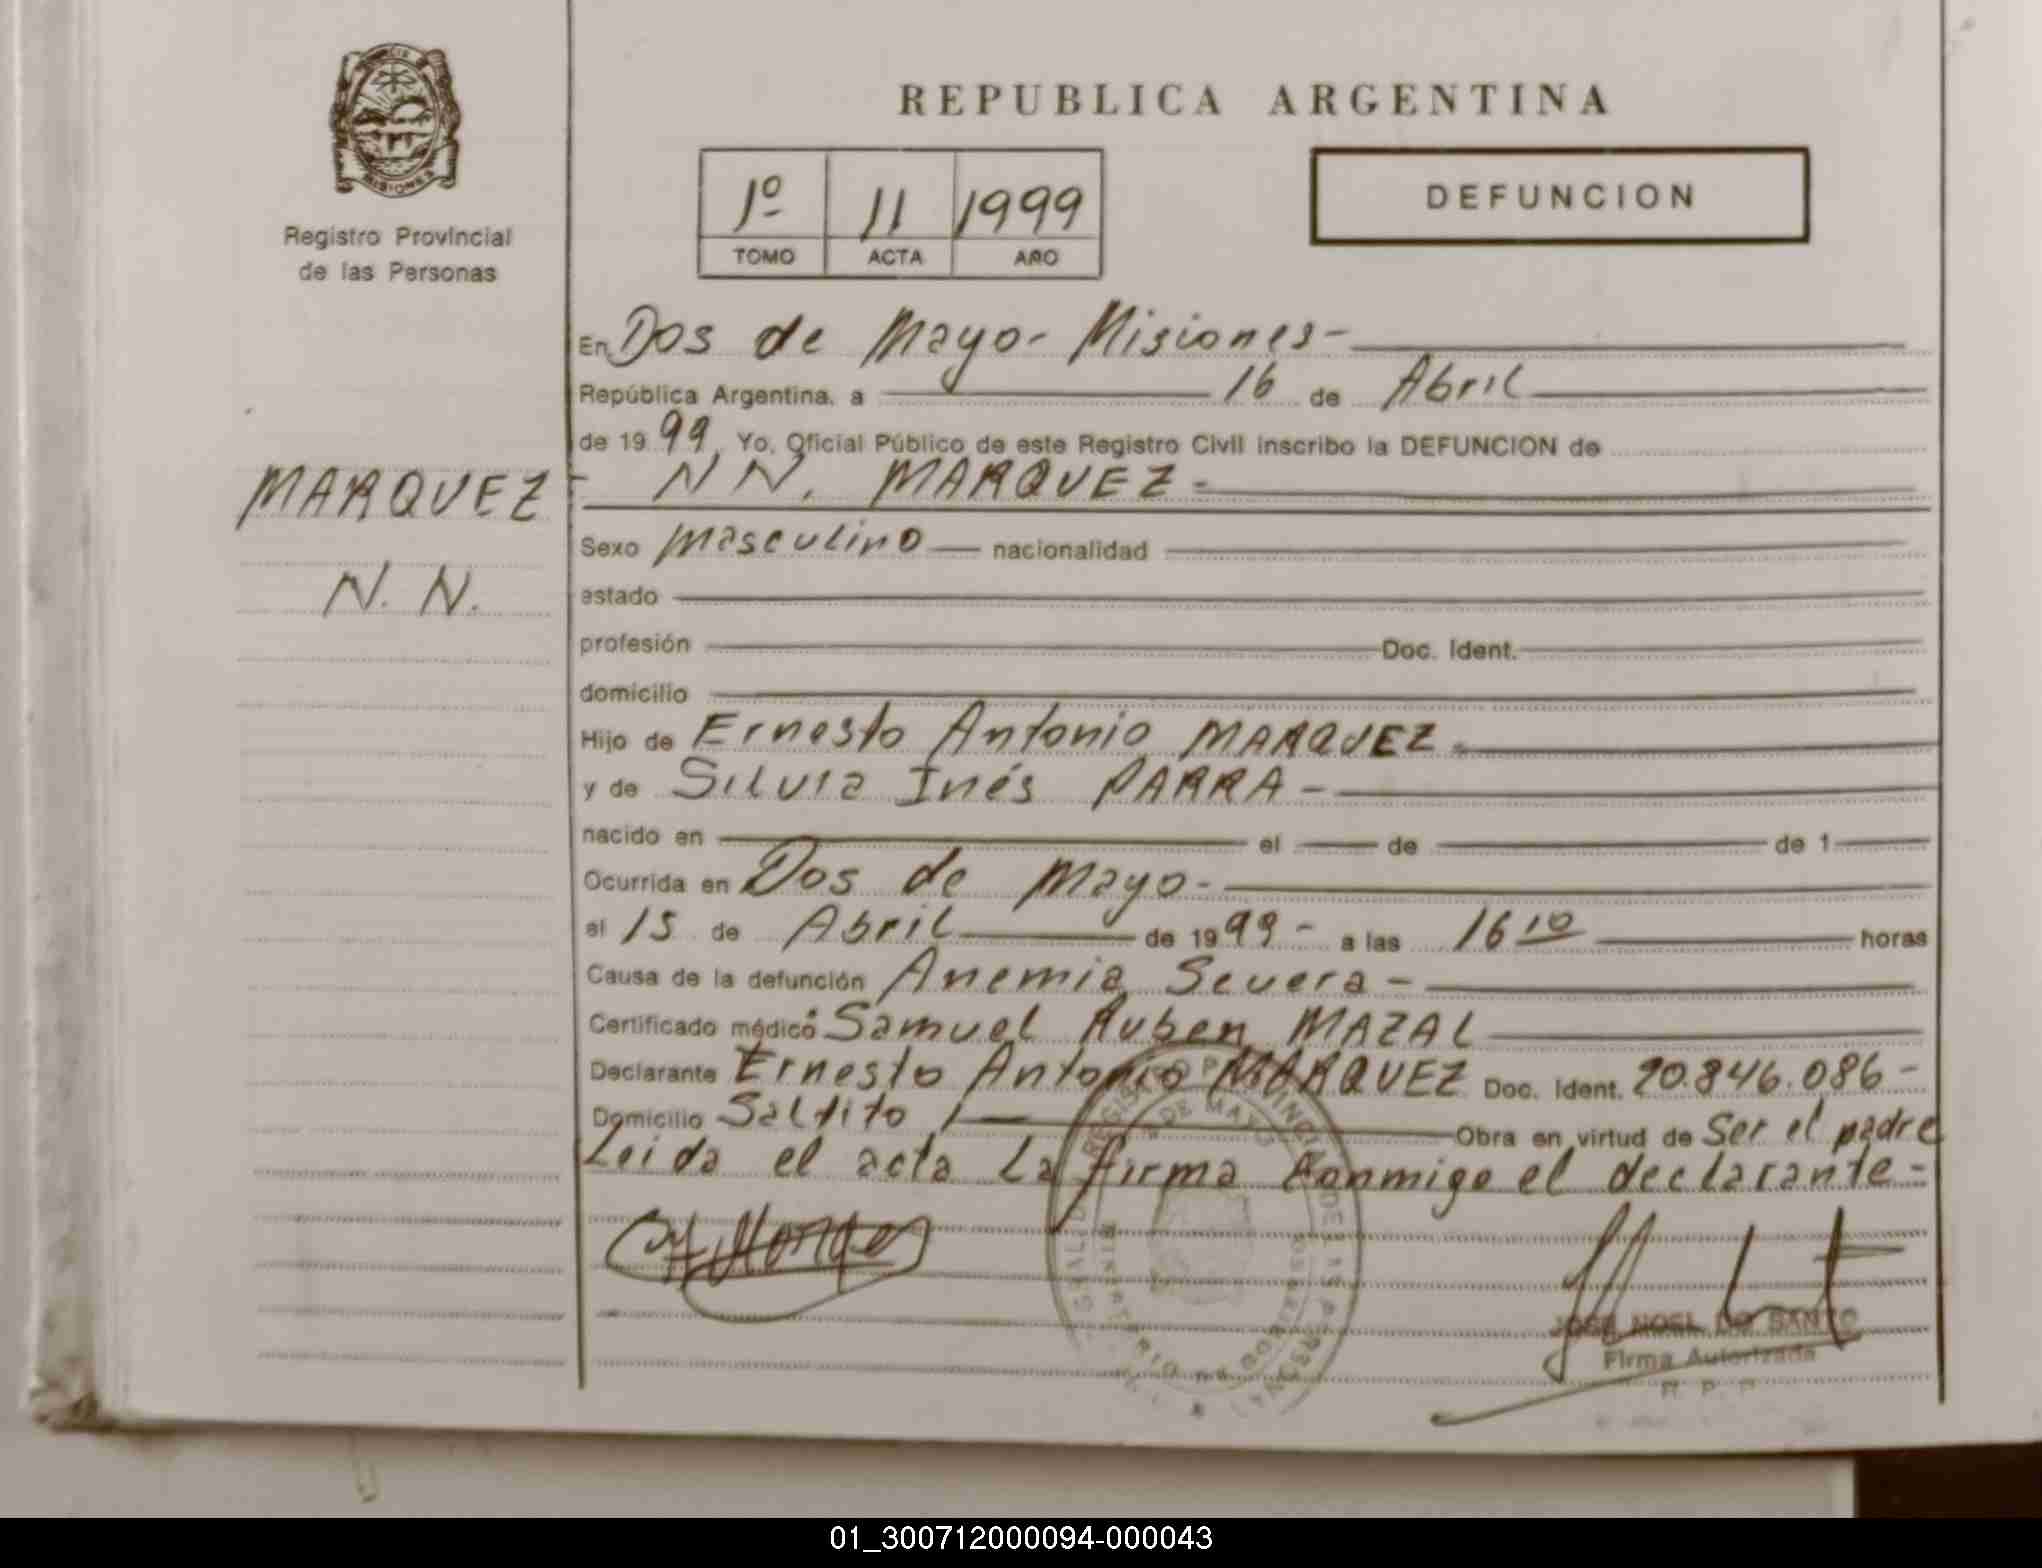 MISIONES
Registro Provincial
de las Personas
MARQUEZ
N. N.
REPUBLICA ARGENTINA
1º 11 1999
TOMO ACTA AÑO
DEFUNCION
En Dos de Mayo- Misiones-
República Argentina, a 16 de Abril
de 1999, Yo, Oficial Público de este Registro Civil inscribo la DEFUNCION de
- N N. MARQUEZ-
Sexo Masculino nacionalidad
estado
profesión Doc. Ident.
domicilio
Hijo de Ernesto Antonio MARQUEZ-
y de Silvia Inés PARRA-
nacido en el de de 1
Ocurrida en Dos de Mayo-
el 15 de Abril de 1999- a las 16 10 horas
Causa de la defunción Anemia Severa-
Certificado médico Samuel Ruben MAZAL
Declarante Ernesto Antonio MARQUEZ Doc. Ident. 20.846.086-
Domicilio Saltito 1 Obra en virtud de Ser el padre
Leida el acta La firma Conmigo el declarante-
JOSE NOEL DO SANTO
Firma Autorizada
R. P. P.
01_300712000094-000043